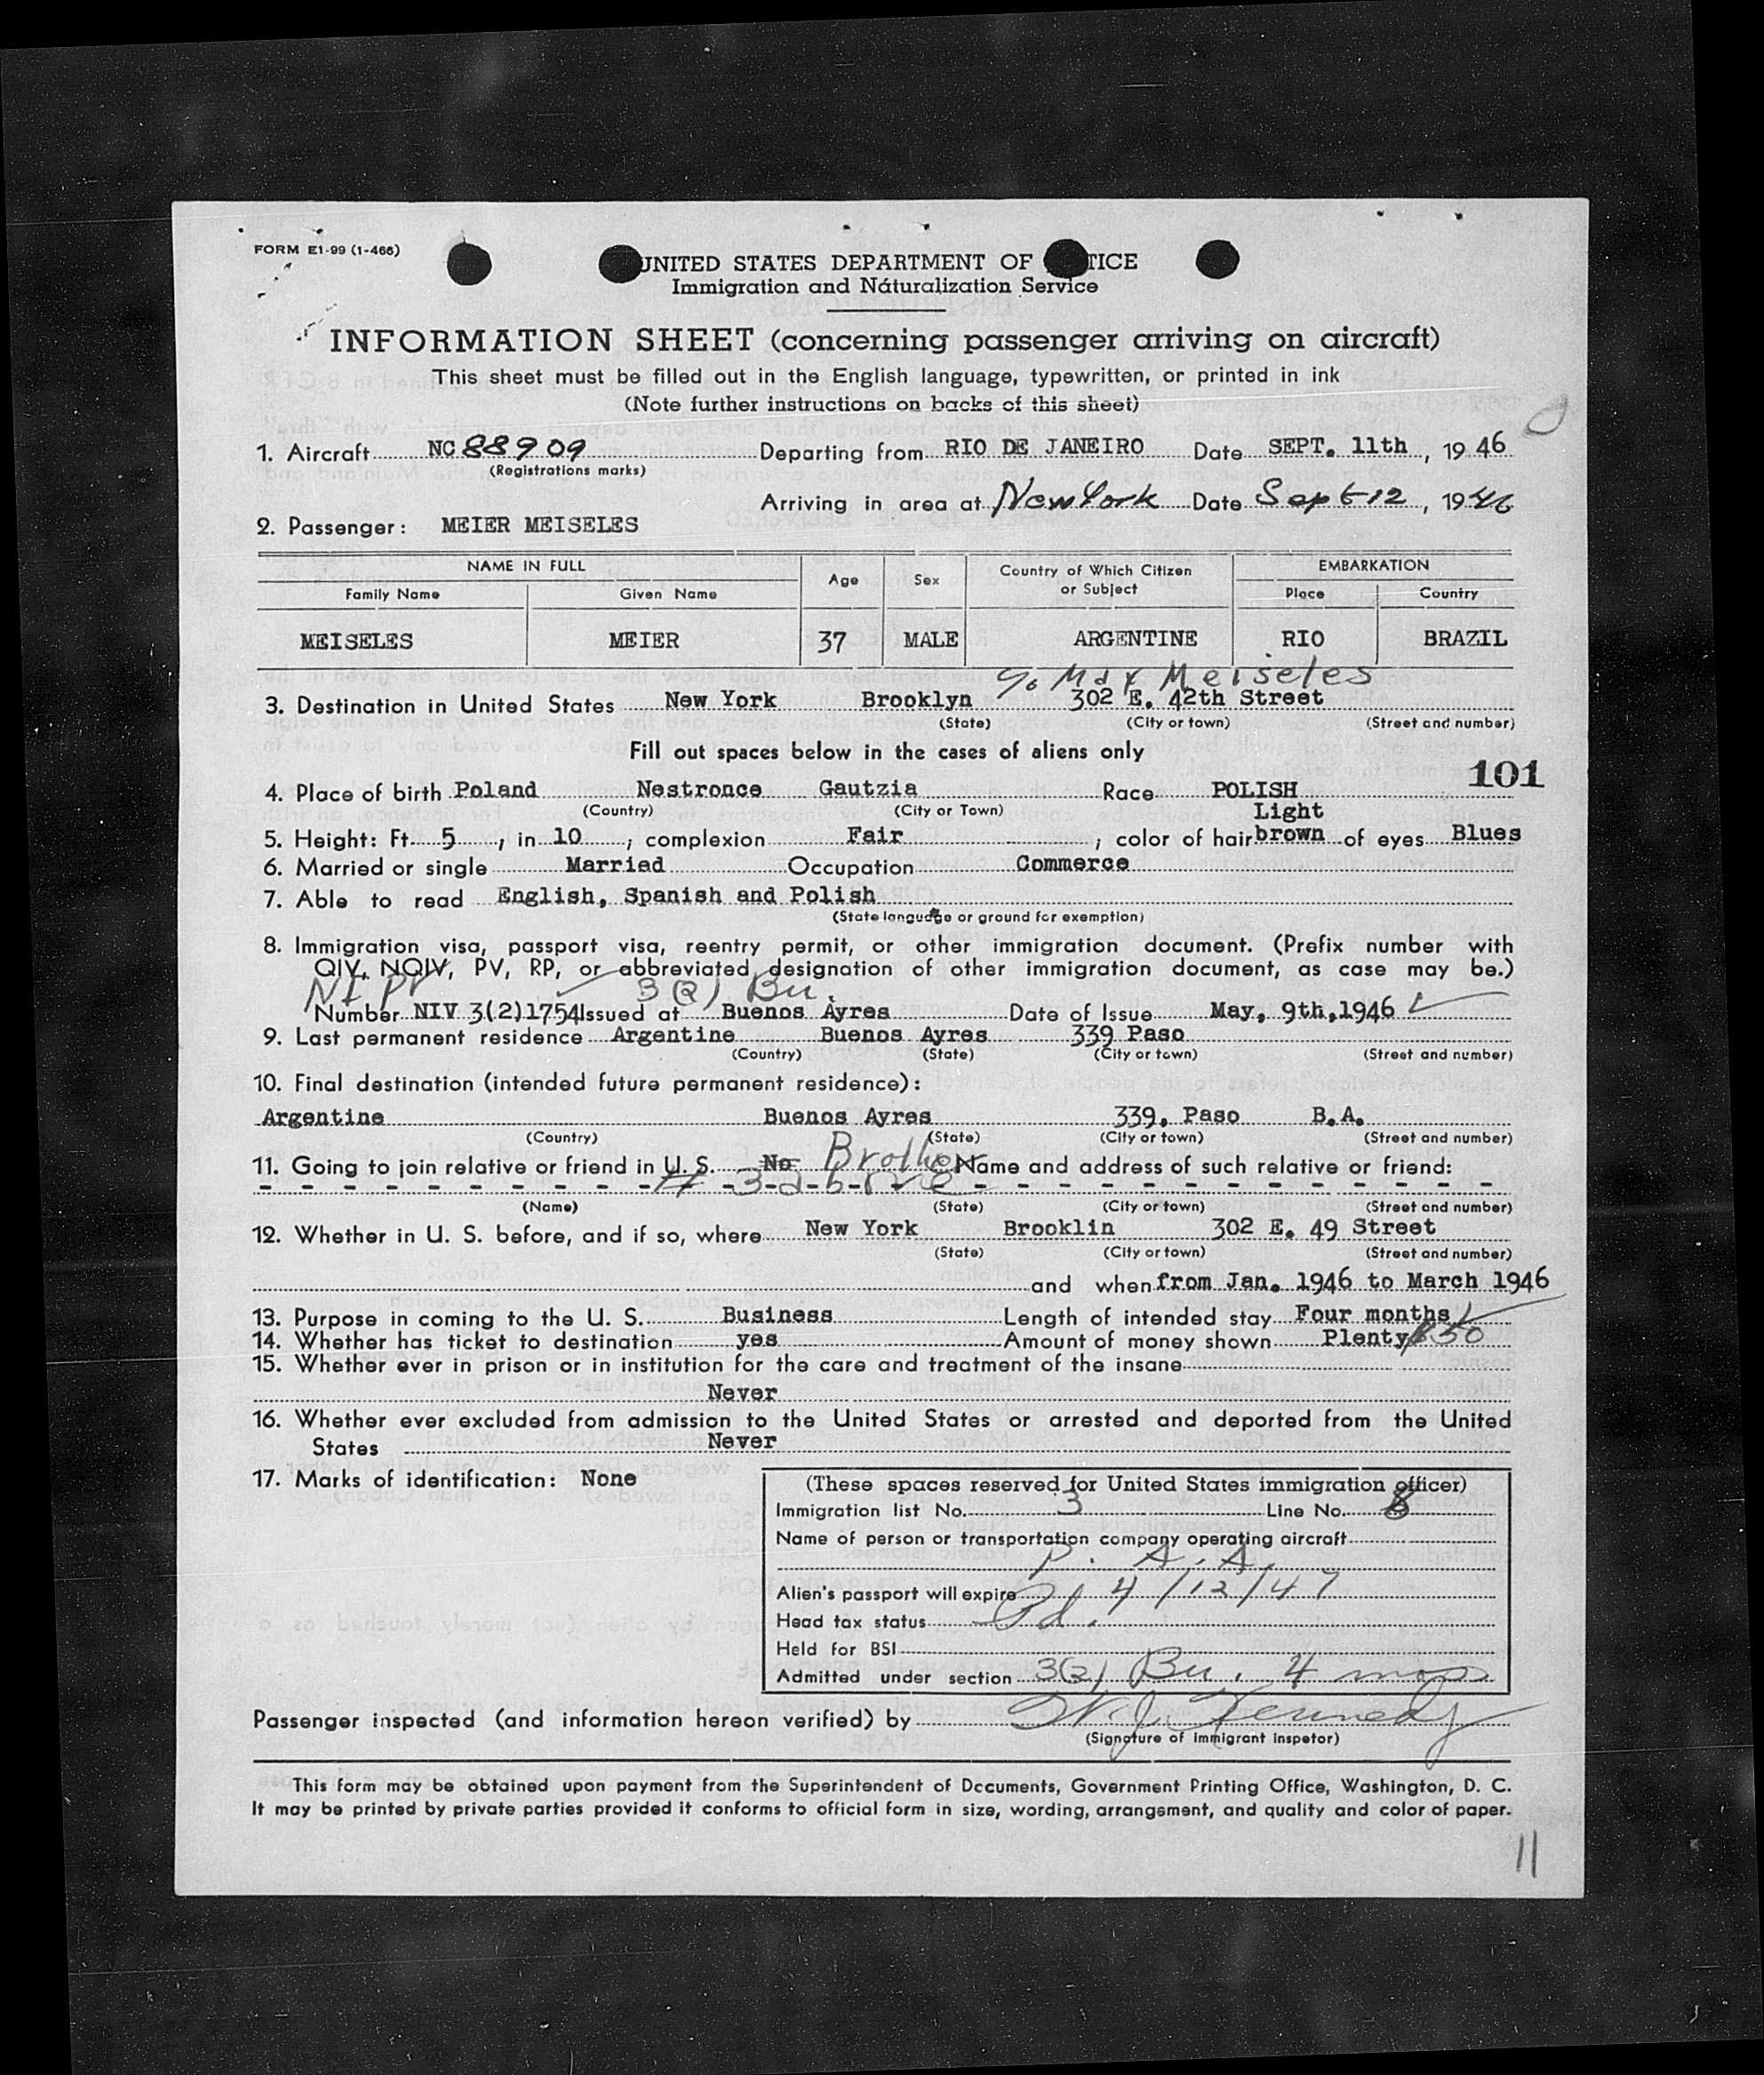 FORM E1-99 (1-466)
UNITED STATES DEPARTMENT OF TICE
Immigration and Naturalization Service
INFORMATION SHEET (concerning passenger arriving on aircraft)
This sheet must be filled out in the English language, typewritten, or printed in ink
(Note further instructions on backs of this sheet)
1. Aircraft NC 88909 Departing from RIO DE JANEIRO Date SEPT. 11th, 1946
(Registrations marks)
Arriving in area at New York Date Sept 12, 1946
2. Passenger: MEIER MEISELES
NAME IN FULL Age Sex Country of Which Citizen or Subject EMBARKATION
Family Name Given Name Place Country
MEISELES MEIER 37 MALE ARGENTINE RIO BRAZIL
c/o Max Meiseles
3. Destination in United States New York Brooklyn 302 E. 42th Street
(State) (City or town) (Street and number)
Fill out spaces below in the cases of aliens only
101
4. Place of birth Poland Nestronce Gautzia Race POLISH
(Country) (City or Town)
Light
5. Height: Ft. 5, in 10; complexion Fair; color of hair brown of eyes Blues
6. Married or single Married Occupation Commerce
7. Able to read English, Spanish and Polish
(State language or ground for exemption)
8. Immigration visa, passport visa, reentry permit, or other immigration document. (Prefix number with
QIV, NQIV, PV, RP, or abbreviated designation of other immigration document, as case may be.)
3(2) Bu.
Number NIV 3(2)1754 Issued at Buenos Ayres Date of Issue May, 9th,1946
9. Last permanent residence Argentine Buenos Ayres 339 Paso
(Country) (State) (City or town) (Street and number)
10. Final destination (intended future permanent residence):
Argentine Buenos Ayres 339, Paso B.A.
(Country) (State) (City or town) (Street and number)
11. Going to join relative or friend in U. S. No Brother Name and address of such relative or friend:
(Name) (State) (City or town) (Street and number)
12. Whether in U. S. before, and if so, where New York Brooklin 302 E. 49 Street
(State) (City or town) (Street and number)
and when from Jan. 1946 to March 1946
13. Purpose in coming to the U. S. Business Length of intended stay Four months
14. Whether has ticket to destination yes Amount of money shown Plenty $50
15. Whether ever in prison or in institution for the care and treatment of the insane
Never
16. Whether ever excluded from admission to the United States or arrested and deported from the United
States Never
17. Marks of identification: None
(These spaces reserved for United States immigration officer)
Immigration list No. 3 Line No. 8
Name of person or transportation company operating aircraft
P. A. A.
Alien's passport will expire 4/12/47
Head tax status Pd.
Held for BSI
Admitted under section 3(2) Bu. 4 mos
Passenger inspected (and information hereon verified) by W. J. Kennedy
(Signature of Immigrant Inspetor)
This form may be obtained upon payment from the Superintendent of Documents, Government Printing Office, Washington, D. C.
It may be printed by private parties provided it conforms to official form in size, wording, arrangement, and quality and color of paper.
11